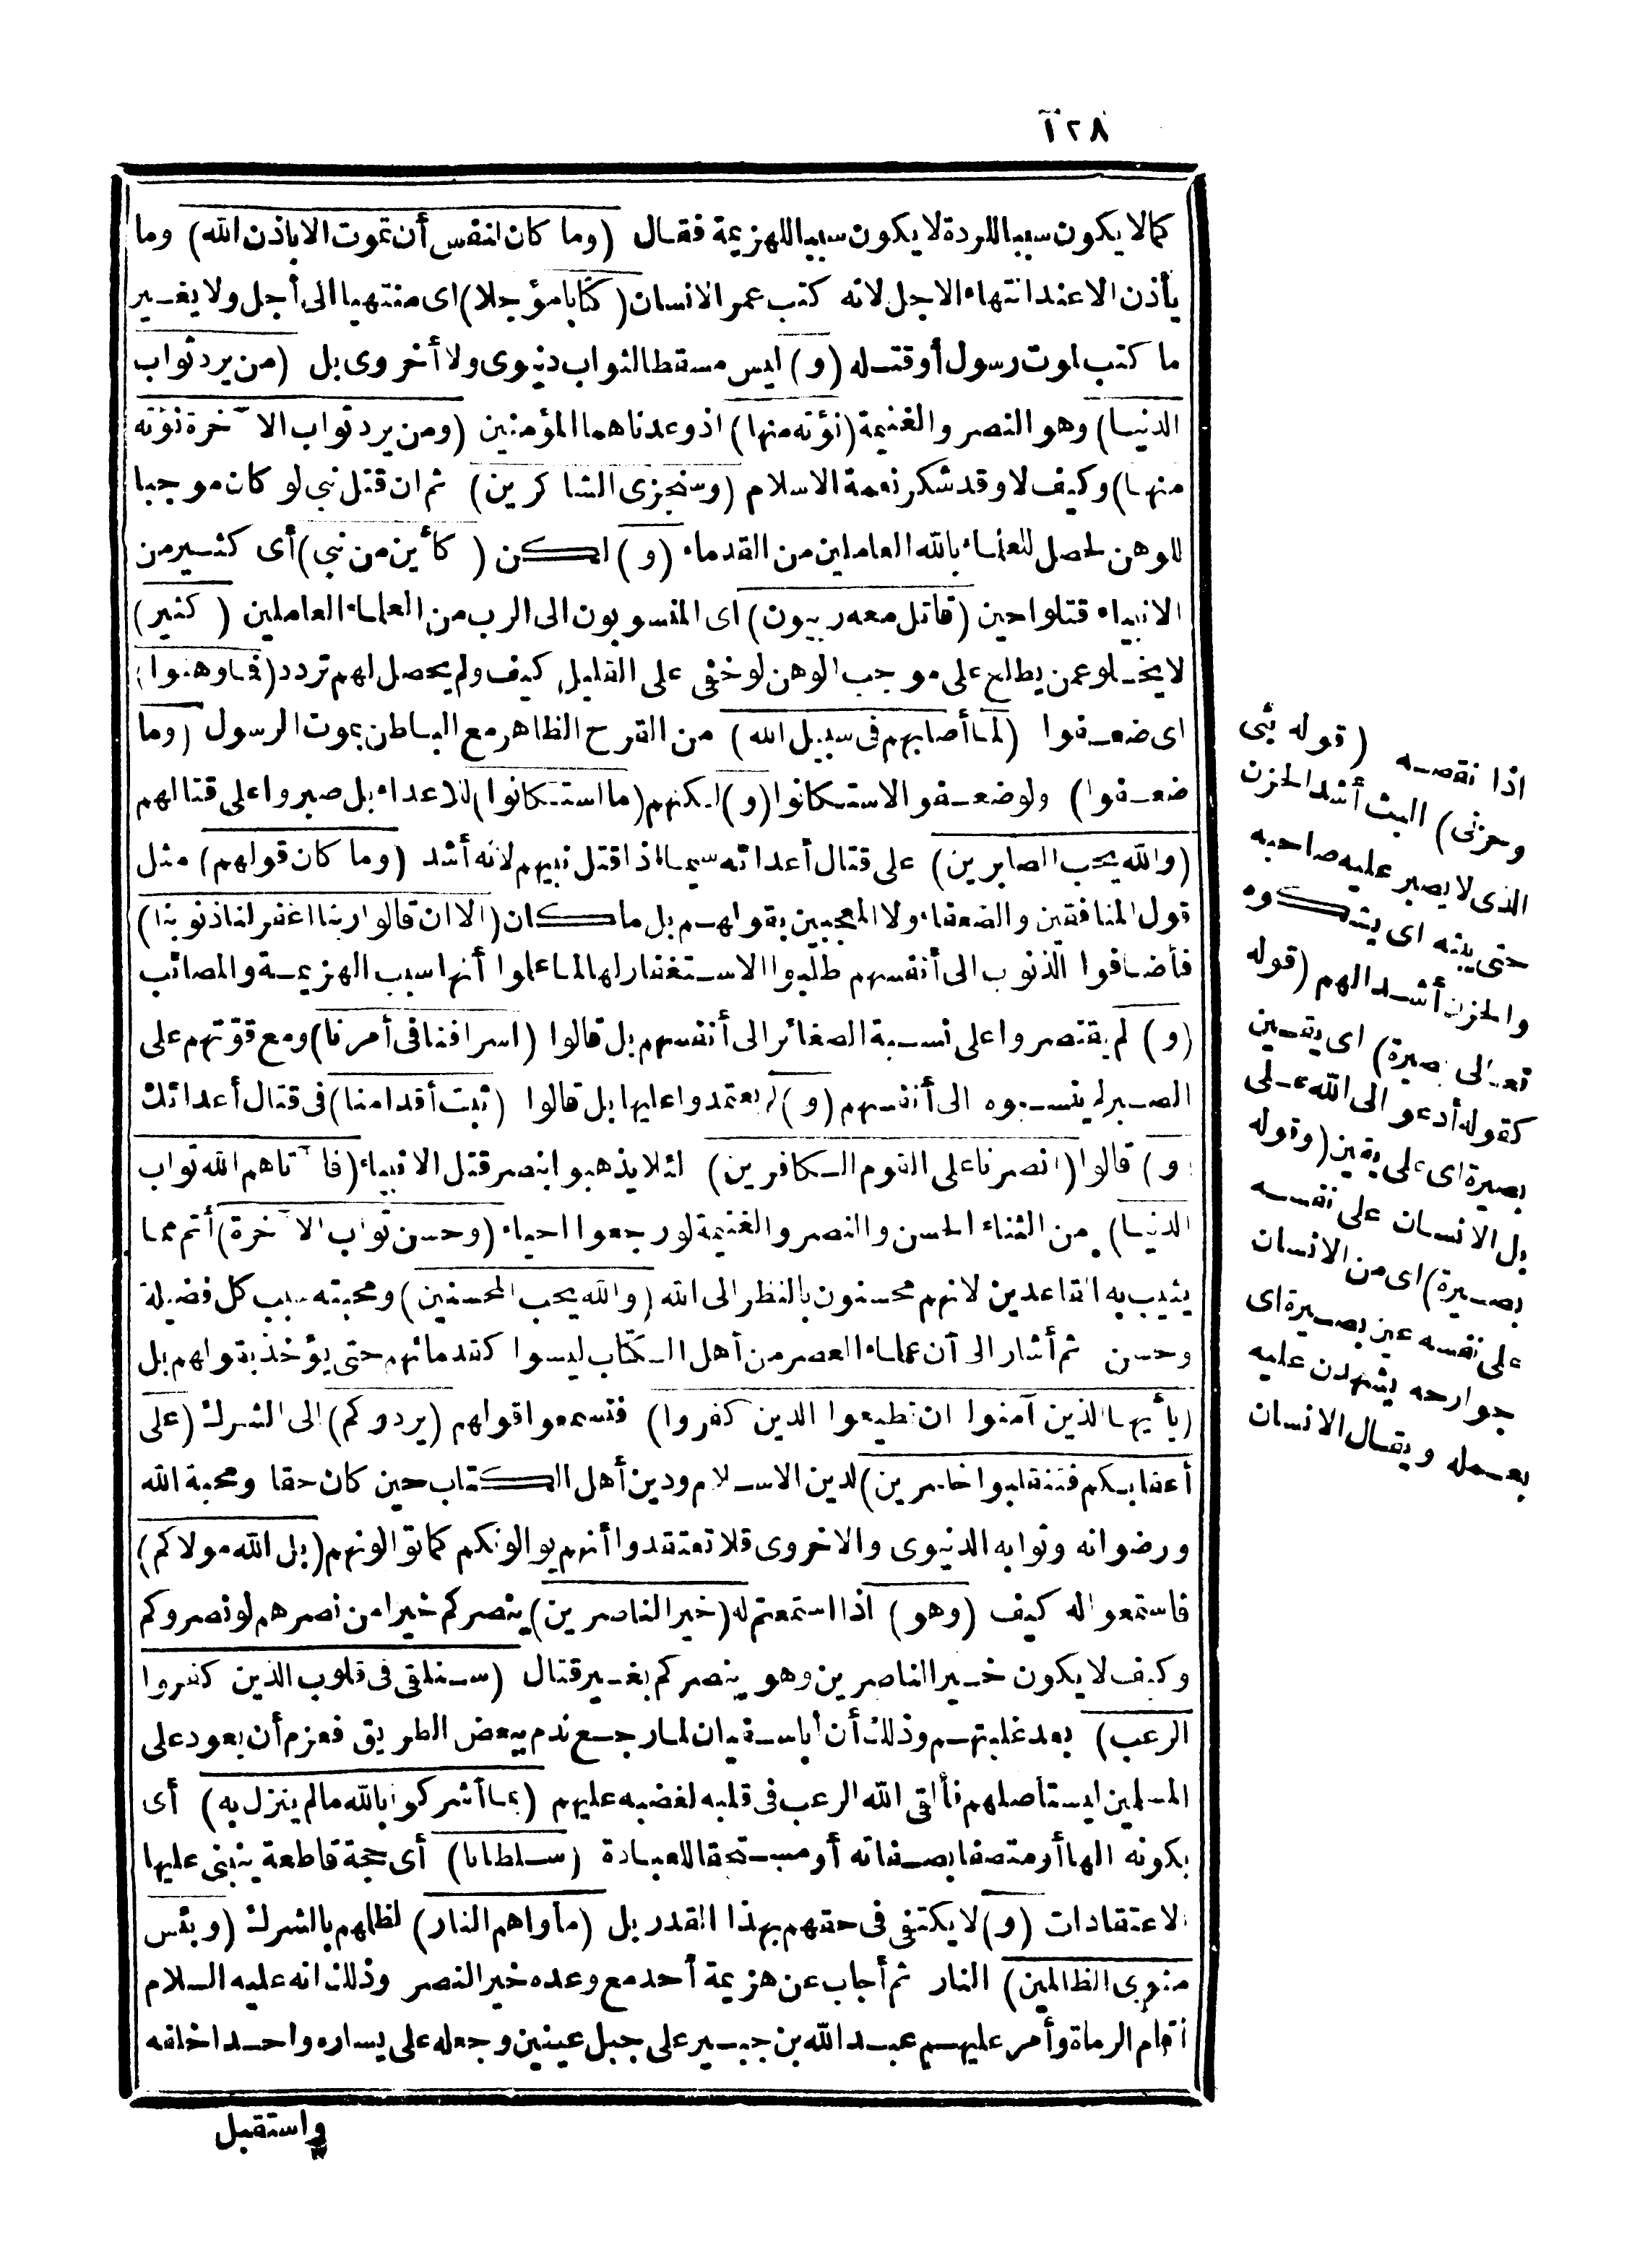 ١٢٨
كما لا يكون سببا للردة لا يكون سببا للهزيمة فقال (وما كان لنفس أن تموت الا باذن الله) وما
يأذن الا عند انتهاء الاجل لانه كتب عمر الانسان (كتابا مؤجلا) اى منتهيا الى أجل ولا يغير
ما كتب لموت رسول أو قتله (و) ليس مسقطا لثواب دنيوى ولا أخروى بل (من يرد ثواب
الدنيا) وهو النصر والغنيمة (نؤته منها) اذ وعدناهما المؤمنين (ومن يرد ثواب الآخرة نؤته
منها) وكيف لا وقد شكر نعمة الاسلام (وسنجزى الشاكرين) ثم ان قتل نبى لو كان موجبا
للوهن لحصل للعلماء بالله العاملين من القدماء (و) لكن (كأين من نبى) أى كثير من
الانبياء قتلوا حين (قاتل معه ربيون) اى المنسوبون الى الرب من العلماء العاملين (كثير)
لا يخلو عمن يطلع على موجب الوهن لو خفى على القليل كيف ولم يحصل لهم تردد (فما وهنوا)
اى ضعفوا (لما أصابهم فى سبيل الله) من القرح الظاهر مع الباطن بموت الرسول (وما
ضعفوا) ولو ضعفوا لاستكانوا (و) لكنهم (ما استكانوا) للاعداء بل صبروا على قتالهم
(والله يحب الصابرين) على قتال أعدائه سيما اذا قتل نبيهم لانه أشد (وما كان قولهم) مثل
قول المنافقين والضعفاء ولا المعجبين بقولهم بل ما كان (الا ان قالوا ربنا اغفر لنا ذنوبنا)
فأضافوا الذنوب الى أنفسهم طلبوا الاستغفار لها لما علموا أنها سبب الهزيمة والمصائب
(و) لم يقتصروا على نسبة الصغائر الى أنفسهم بل قالوا (اسرافنا فى أمرنا) ومع قوتهم على
الصبر لم ينسبوه الى أنفسهم (و) لم يعتمدوا عليها بل قالوا (ثبت أقدامنا) فى قتال أعدائك
(و) قالوا (انصرنا على القوم الكافرين) لئلا يذهبوا بنصر قتل الانبياء (فآتاهم الله ثواب
الدنيا) من الثناء الحسن والنصر والغنيمة لو رجعوا احياء (وحسن ثواب الآخرة) أتم مما
يثيب به القاعدين لانهم محسنون بالنظر الى الله (والله يحب المحسنين) ومحبته سبب كل فضيلة
وحسن ثم أشار الى أن علماء العصر من أهل الكتاب ليسوا كقدمائهم حتى يؤخذ بقولهم بل
(يأيها الذين آمنوا ان تطيعوا الذين كفروا) فتسمعوا قولهم (يردوكم) الى الشرك (على
أعقابكم فتنقلبوا خاسرين) لدين الاسلام ودين أهل الكتاب حين كان حقا ومحبة الله
ورضوانه وثوابه الدنيوى والاخروى فلا تعتقدوا أنهم يوالونكم كما توالونهم (بل الله مولاكم)
فاستمعوا له كيف (وهو) اذا استمعتم له (خير الناصرين) ينصركم خيرا من نصرهم لو نصروكم
وكيف لا يكون خير الناصرين وهو ينصركم بغير قتال (سنلقى فى قلوب الذين كفروا
الرعب) بعد غلبتهم وذلك أن أبا سفيان لما رجع ندم ببعض الطريق فعزم أن يعود على
المسلمين ليستأصلهم فألقى الله الرعب فى قلبه لغضبه عليهم (بما أشركوا بالله ما لم ينزل به) أى
بكونه الها أو متصفا بصفاته أو مستحقا للعبادة (سلطانا) أى حجة قاطعة ينبنى عليها
الاعتقادات (و) لا يكتفى فى حقهم بهذا القدر بل (مأواهم النار) لظلمهم بالشرك (وبئس
مثوى الظالمين) النار ثم أجاب عن هزيمة أحد مع وعده خير النصر وذلك انه عليه السلام
أقام الرماة وأمر عليهم عبد الله بن جبير على جبل عينين وجعله على يساره واحدا خلفه
واستقبل
اذا نقصه (قوله بثى
وحزنى) البث أشد الحزن
الذى لا يصبر عليه صاحبه
حتى يبثه اى يشكوه
والحزن أشد الهم (قوله
تعالى بصيرة) اى يقين
كقوله أدعو الى الله على
بصيرة اى على يقين (وقوله
بل الانسان على نفسه
بصيرة) اى من الانسان
على نفسه عين بصيرة اى
جوارحه يشهدن عليه
بعمله ويقال الانسان